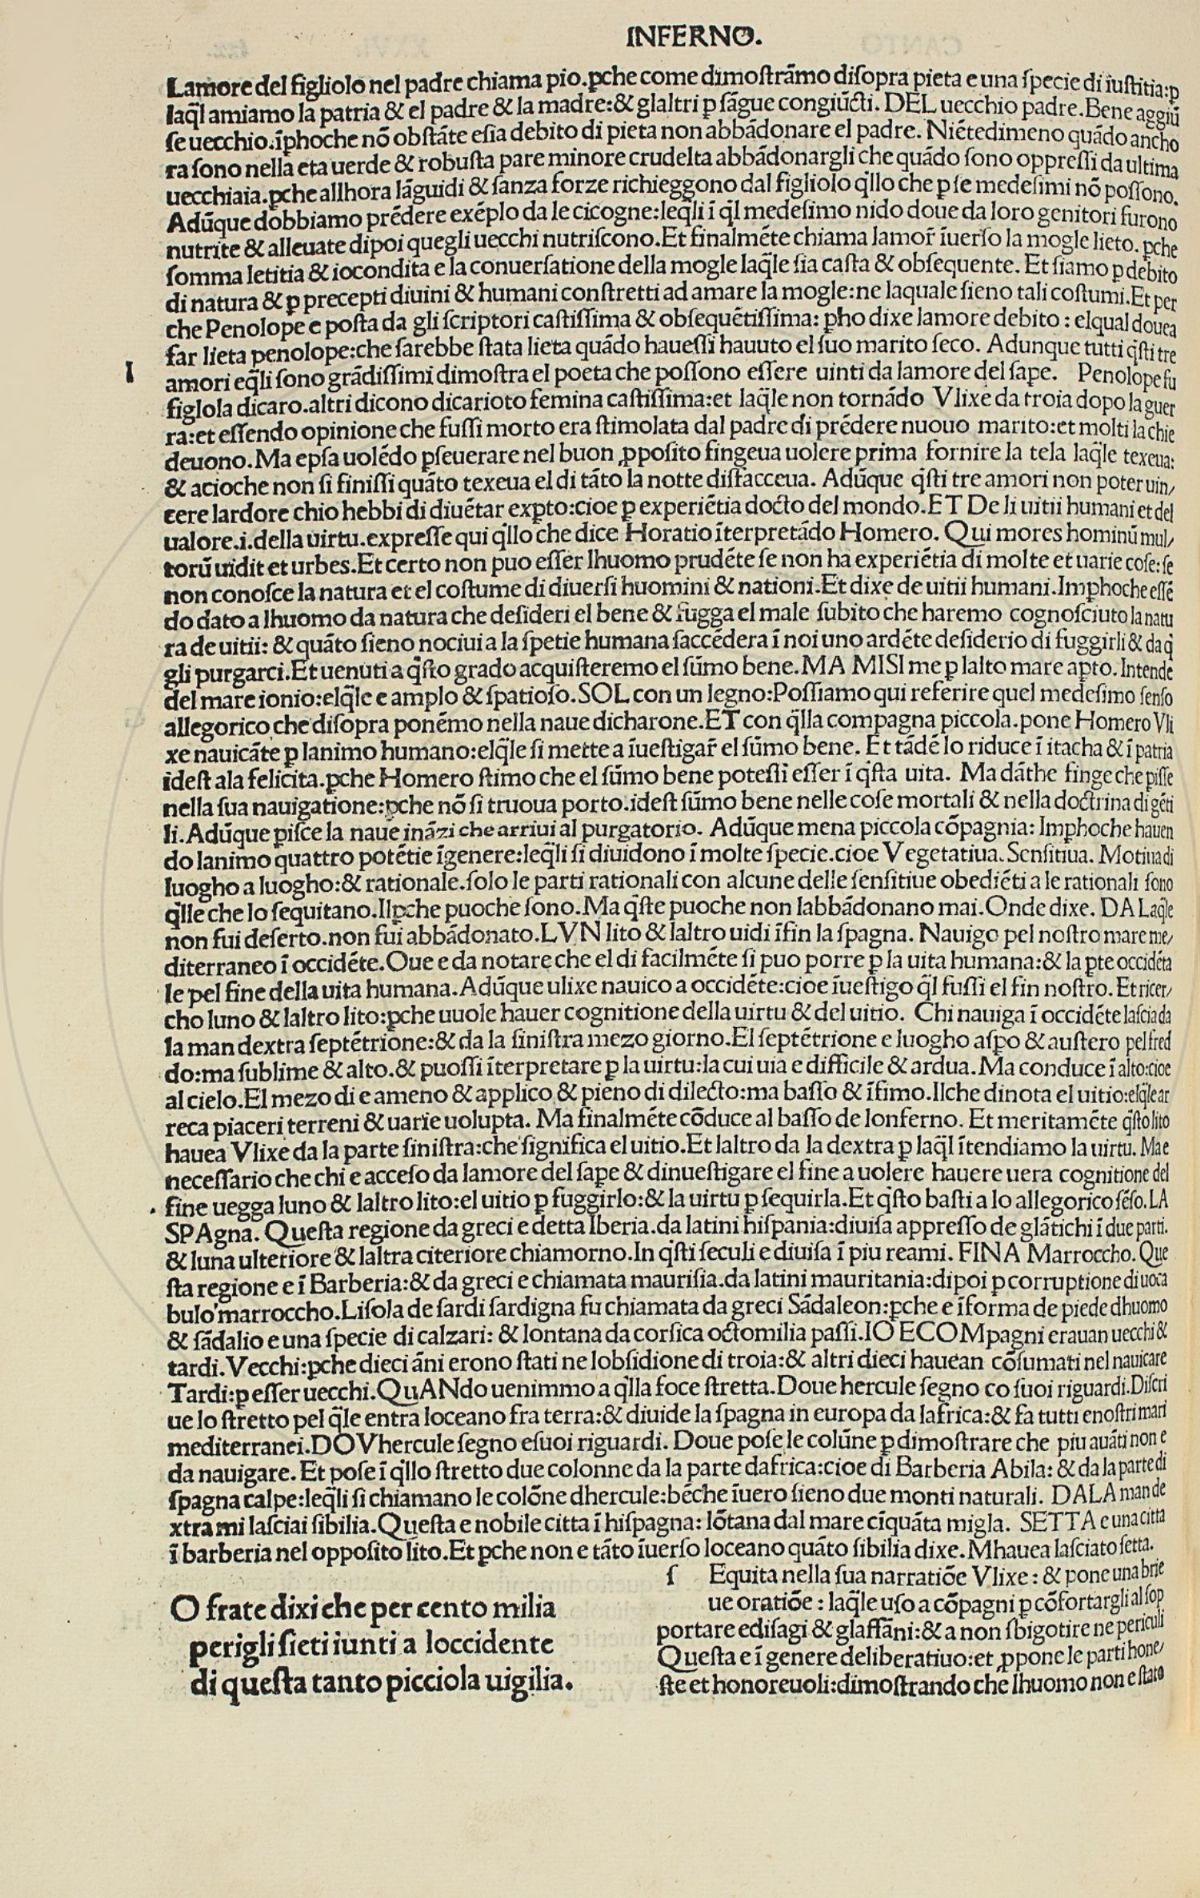 INFERNO.
Lamore del figliolo nel padre chiama pio.ꝑche come dimoſtrãmo diſopra pieta e una ſpecie di iuſtitia:ꝑ
laq̃l amiamo la patria & el padre & la madre:& glaltri ꝑ ſãgue congiũcti. DEL uecchio padre.Bene aggiũ
ſe uecchio.ĩꝑhoche nõ obſtãte eſia debito di pieta non abbãdonare el padre. Niẽtedimeno quãdo ancho
ra ſono nella eta uerde & robuſta pare minore crudelta abbãdonargli che quãdo ſono oppreſſi da ultima
uecchiaia.ꝑche allhora lãguidi & ſanza forze richieggono dal figliolo q̃llo che ꝑ ſe medeſimi nõ poſſono.
Adũque dobbiamo prẽdere exẽplo da le cicogne:leq̃li ĩ q̃l medeſimo nido doue da loro genitori furono
nutrite & alleuate dipoi quegli uecchi nutriſcono.Et finalmẽte chiama lamor̃ ĩuerſo la mogle lieto. ꝑche
ſomma letitia & iocondita e la conuerſatione della mogle laq̃le ſia caſta & obſequente. Et ſiamo ꝑ debito
di natura & ꝑ precepti diuini & humani conſtretti ad amare la mogle:ne laquale ſieno tali coſtumi.Et per
che Penolope e poſta da gli ſcriptori caſtiſſima & obſequẽtiſſima: ꝑho dixe lamore debito : elqual douea
far lieta penolope:che ſarebbe ſtata lieta quãdo haueſſi hauuto el ſuo marito ſeco. Adunque tutti q̃ſti tre
I amori eq̃li ſono grãdiſſimi dimoſtra el poeta che poſſono eſſere uinti da lamore del ſape. Penolope fu
figlola dicaro.altri dicono dicarioto femina caſtiſſima:et laq̃le non tornãdo Vlixe da troia dopo la guer
ra:et eſſendo opinione che fuſſi morto era ſtimolata dal padre di prẽdere nuouo marito:et molti la chie
deuono.Ma epſa uolẽdo ꝑſeuerare nel buon ꝓpoſito fingeua uolere prima fornire la tela laq̃le texeua:
& acioche non ſi finiſſi quãto texeua el di tãto la notte diſfacceua. Adũque q̃ſti tre amori non poter uin/
cere lardore chio hebbi di diuẽtar expto:cioe ꝑ experiẽtia docto del mondo.ET De li uitii humani et del
ualore.i.della uirtu.expreſſe qui q̃llo che dice Horatio ĩterpretãdo Homero. Qui mores hominũ mul/
torũ uidit et urbes.Et certo non puo eſſer lhuomo prudẽte ſe non ha experiẽtia di molte et uarie coſe:ſe
non conoſce la natura et el coſtume di diuerſi huomini & nationi.Et dixe de uitii humani.Imꝑhoche eſſẽ
do dato a lhuomo da natura che deſideri el bene & fugga el male ſubito che haremo cognoſciuto la natu
ra de uitii: & quãto ſieno nociui a la ſpetie humana ſaccẽdera ĩ noi uno ardẽte deſiderio di fuggirli & da q̃
gli purgarci.Et uenuti a q̃ſto grado acquiſteremo el ſũmo bene.MA MISI me ꝑ lalto mare apto.Intende
del mare ionio:elq̃le e amplo & ſpatioſo.SOL con un legno:Poſſiamo qui referire quel medeſimo ſenſo
allegorico che diſopra ponẽmo nella naue dicharone.ET con q̃lla compagna piccola.pone Homero Vli
xe nauicãte ꝑ lanimo humano:elq̃le ſi mette a ĩueſtigar̃ el ſũmo bene. Et tãdẽ lo riduce ĩ itacha & ĩ patria
ideſt ala felicita.ꝑche Homero ſtimo che el ſũmo bene poteſſi eſſer ĩ q̃ſta uita. Ma dãthe finge che piſſe
nella ſua nauigatione:ꝑche nõ ſi truoua porto.ideſt ſũmo bene nelle coſe mortali & nella doctrina di gẽti
li.Adũque piſce la naue inãzi che arriui al purgatorio. Adũque mena piccola cõpagnia: Imꝑhoche hauen
do lanimo quattro potẽtie ĩgenere:leq̃li ſi diuidono ĩ molte ſpecie.cioe Vegetatiua.Senſitiua. Motiua di
luogho a luogho:& rationale.ſolo le parti rationali con alcune delle ſenſitiue obediẽti a le rationali ſono
q̃lle che lo ſequitano.Ilꝑche puoche ſono.Ma q̃ſte puoche non labbãdonano mai.Onde dixe. DA Laq̃le
non fui deſerto.non fui abbãdonato.LVN lito & laltro uidi ĩfin la ſpagna. Nauigo pel noſtro mare me/
diterraneo ĩ occidẽte.Oue e da notare che el di facilmẽte ſi puo porre ꝑ la uita humana:& la pte occidẽta
le pel fine della uita humana.Adũque ulixe nauico a occidẽte:cioe ĩueſtigo q̃l fuſſi el fin noſtro.Et ricer/
cho luno & laltro lito:ꝑche uuole hauer cognitione della uirtu & del uitio. Chi nauiga ĩ occidẽte laſcia da
la man dextra ſeptẽtrione:& da la ſiniſtra mezo giorno.El ſeptẽtrione e luogho aſpo & auſtero pel fred
do:ma ſublime & alto.& puoſſi ĩterpretare ꝑ la uirtu:la cui uia e difficile & ardua.Ma conduce ĩ alto:cioe
al cielo.El mezo di e ameno & applico & pieno di dilecto:ma baſſo & ĩfimo.Ilche dinota el uitio:elq̃le ar
reca piaceri terreni & uarie uolupta. Ma finalmẽte cõduce al baſſo de lonferno. Et meritamẽte q̃ſto lito
hauea Vlixe da la parte ſiniſtra:che ſignifica el uitio.Et laltro da la dextra ꝑ laq̃l ĩtendiamo la uirtu. Ma e
neceſſario che chi e acceſo da lamore del ſape & dinueſtigare el fine a uolere hauere uera cognitione del
fine uegga luno & laltro lito:el uitio ꝑ fuggirlo:& la uirtu ꝑ ſequirla.Et q̃ſto baſti a lo allegorico ſẽſo.LA
SPAgna. Queſta regione da greci e detta Iberia.da latini hiſpania:diuiſa appreſſo de glãtichi ĩ due parti.
& luna ulteriore & laltra citeriore chiamorno.In q̃ſti ſeculi e diuiſa ĩ piu reami. FINA Marroccho. Que
ſta regione e ĩ Barberia:& da greci e chiamata mauriſia.da latini mauritania:dipoi ꝑ corruptione di uoca
bulo marroccho.Liſola de ſardi ſardigna fu chiamata da greci Sãdaleon:ꝑche e ĩ forma de piede dhuomo
& ſãdalio e una ſpecie di calzari: & lontana da corſica octomilia paſſi.IO E COMpagni erauan uecchi &
tardi.Vecchi:ꝑche dieci ãni erono ſtati ne lobſidione di troia:& altri dieci hauean cõſumati nel nauicare
Tardi:ꝑ eſſer uecchi.QuANdo uenimmo a q̃lla foce ſtretta.Doue hercule ſegno co ſuoi riguardi.Diſcri
ue lo ſtretto pel q̃le entra loceano fra terra:& diuide la ſpagna in europa da lafrica:& fa tutti e noſtri mari
mediterranei.DOVhercule ſegno eſuoi riguardi. Doue poſe le colũne ꝑ dimoſtrare che piu auãti non e
da nauigare. Et poſe ĩ q̃llo ſtretto due colonne da la parte dafrica:cioe di Barberia Abila: & da la parte di
ſpagna calpe:leq̃li ſi chiamano le colõne dhercule:bẽche ĩuero ſieno due monti naturali. DALA man de
xtra mi laſciai ſibilia.Queſta e nobile citta ĩ hiſpagna: lõtana dal mare cĩquãta migla. SETTA e una citta
ĩ barberia nel oppoſito lito.Et ꝑche non e tãto ĩuerſo loceano quãto ſibilia dixe.Mhauea laſciato ſetta.
O frate dixi che per cento milia
perigli ſieti iunti a loccidente
di queſta tanto picciola uigilia.
ſ Equita nella ſua narratiõe Vlixe : & pone una brie
ue oratiõe : laq̃le uſo a cõpagni ꝑ cõfortargli al ſop
portare ediſagi & glaffãni:& a non ſbigotire ne periculi
Queſta e ĩ genere deliberatiuo:et ꝓpone le parti hone/
ſte et honoreuoli:dimoſtrando che lhuomo non e ſtato